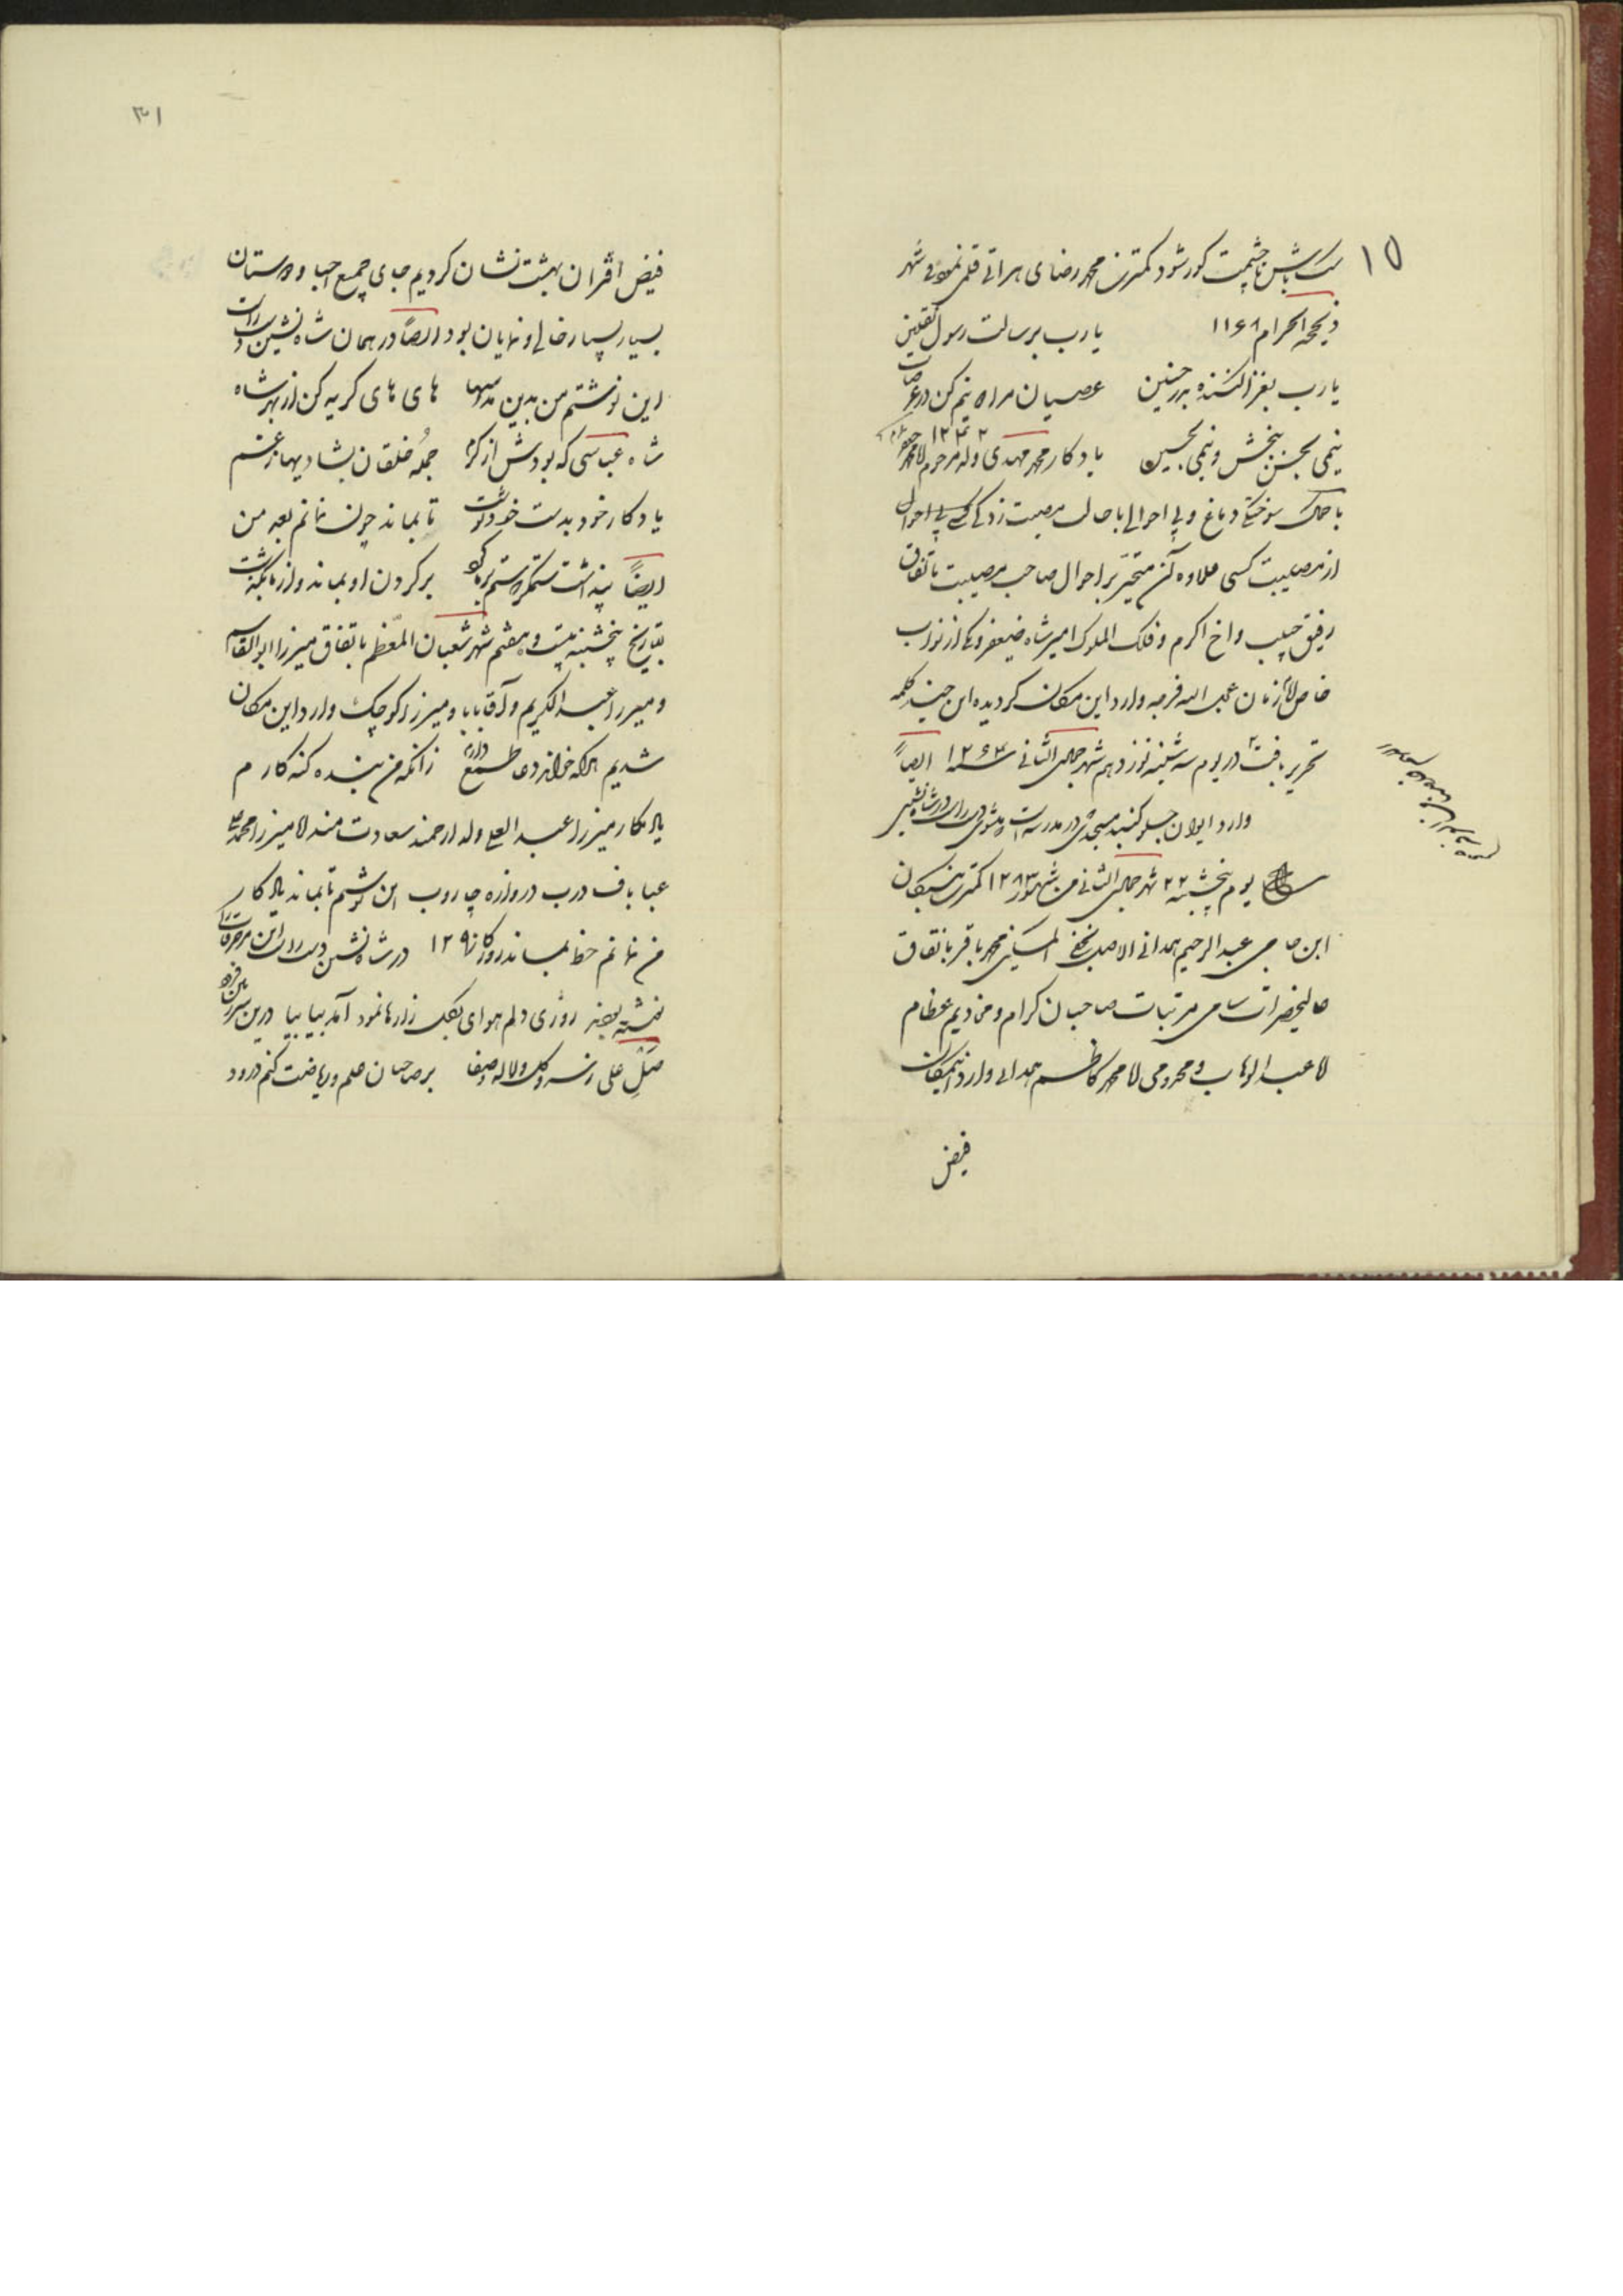 ۱۵
باش تا چشمت کور شود کمترین محمد رضای هراتی قلمی نمود فی شهر
ذیحجة الحرام ۱۱۶۸ یا رب برسالت رسول الثقلین
یا رب بغزا کننده بدر و حنین عصیان مرا دو نیم کن در عرصات
نیمی بحسن ببخش و نیمی بحسین یادکار محمد مهدی ولد مرحوم ملا محمد جعفر ۱۲۴۲
با کمال سوختکی دماغ و بی احوالی با حال مصیبت زدکی کسی بی احوال
از مصیبت کسی علاوه آن متحیر بر احوال صاحب مصیبت باتفاق
رفیق حبیب و اخ اکرم و فلک الملوک امیر شاه
وارد این مکان کردیده این چند کلمه
تحریر یافت در یوم سه شنبه نوزدهم شهر جمادی الثانی سنه ۱۲۶۴ ایضاً
وارد ایوان جلو کنبد مسجدی در مدرسه است
یوم پنجشنبه ۲۲ شهر جمادی الثانی من شهور ۱۲۸۳ کمترین بندکان
ابن حاجی عبدالرحیم همدانی الاصل نجفی المسکن محمد باقر باتفاق
عالیحضرات سامی مرتبات صاحبان کرام و مخادیم عظام
ملا عبدالوهاب و مخدومی ملا محمد کاظم همدانی وارد این مکان
فیض
۳۱
فیض اقتران بهشت نشان کردیم جای جمیع احبا و دوستان
بسیار بسیار خالی و نمایان بود ایضاً در همان شاه نشین دست راست
این نوشتم من بدین مد سیاه های های کریه کن از بهر شاه
شاه عباسی که بودش از کرم جمله خلقان بشادیها ز غم
یادکار خود بدست خود نوشت تا بماند چون نمانم بعد من
ایضاً پنداشت ستمکر که ستم بر ما کرد بر کردن او بماند و از ما بکذشت
بتاریخ پنجشنبه بیست و هفتم شهر شعبان المعظم باتفاق میرزا ابوالقاسم
و میرزا عبدالکریم و آقا بابا و میرزا کوچک وارد این مکان
شدیم هر که خواند دعا طمع دارم زانکه من بنده کنه کارم
یادکار میرزا عبدالعلی ولد ارجمند سعادتمند ملا میرزا محمد
عبا باف درب دروازه چاروب این نوشتم تا بماند یادکار
من نمانم خط بماند روزکار ۱۲۹۰ در شاه نشین دست راست این مزخرفات را
نوشته بودند روزی دلم هوای بزار ها نمود آمد بیا بیا درین
صل علی ز سرو و کل و لاله و صفا بر صاحبان علم و ریاضت کنم درود